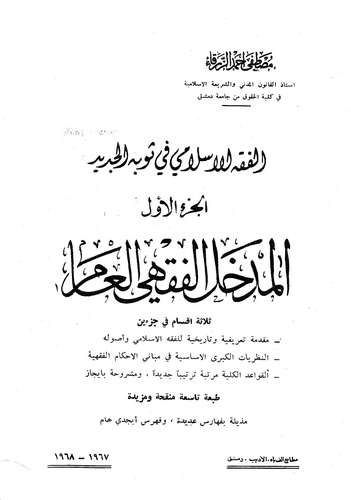 مصطفى احمد الزرقاء
استاذ القانون المدني والشريعة الاسلامية
في كلية الحقوق من جامعة دمشق
الفقه الاسلامي في ثوبه الجديد
الجزء الأول
المدخل الفقهي العام
ثلاثة اقسام في جزءين
– مقدمة تعريفية وتاريخية للفقه الاسلامي وأصوله
– النظريات الكبرى الاساسية في مباني الاحكام الفقهية
– القواعد الكلية مرتبة ترتيباً جديداً ، ومشروحة بايجاز
طبعة تاسعة منقحة ومزيدة
مذيلة بفهارس عديدة ، وفهرس أبجدي عام
مطابع الف باء ـ الأديب ـ دمشق
١٩٦٧ – ١٩٦٨